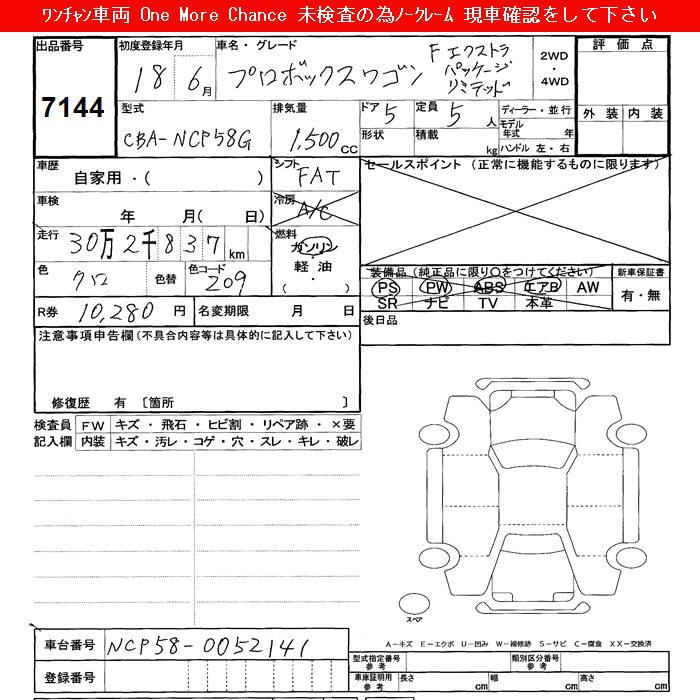 ﾜﾝﾁｬﾝ車両 One More Chance 未検査の為ﾉｰｸﾚｰﾑ 現車確認をして下さい
出品番号 初度登録年月 車名・グレード 2WD・4WD 評価点
7144 18 6月 プロボックスワゴン Fエクストラ
パッケージ
リミテッド
外装 内装
型式 排気量 ドア 定員 ディーラー・並行
CBA-NCP58G 1,500cc 5 5人 モデル年式 年
形状 積載 kg ハンドル 左・右
車歴 自家用・( ) シフト FAT セールスポイント (正常に機能するものに限ります)
車検 年 月( 日) 冷房 A/C
走行 30万2千837km 燃料 ガソリン
軽油
( ・ )
色 クロ 色替 色コード 209
装備品 (純正品に限り〇をつけてください) 新車保証書
PS PW ABS エアB AW 有・無
SR ナビ TV 本革
R券 10,280円 名変期限 月 日 後日品
注意事項申告欄(不具合内容等は具体的に記入して下さい)
修復歴 有 〔箇所 〕
検査員 FW キズ・飛石・ヒビ割・リペア跡・×要
記入欄 内装 キズ・汚レ・コゲ・穴・スレ・キレ・破レ
スペア
A-キズ E-エクボ U-凹み W-補修跡 S-サビ C-腐食 XX-交換済
車台番号 NCP58-0052141
型式指定番号 参考 類別区分番号 参考
登録番号 車庫証明用 参考 長さ cm 幅 cm 高さ cm